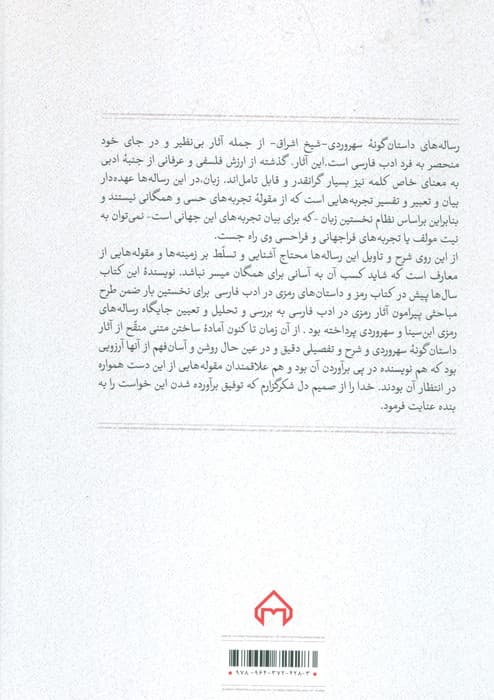 رساله‌های داستان‌گونهٔ سهروردی-شیخ اشراق- از جمله آثار بی‌نظیر و در جای خود
منحصر به فرد ادب فارسی است.این آثار، گذشته از ارزش فلسفی و عرفانی از جنبهٔ ادبی
به معنای خاص کلمه نیز بسیار گرانقدر و قابل تامل‌اند. زبان،در این رساله‌ها عهده‌دار
بیان و تعبیر و تفسیر تجربه‌هایی است که از مقولهٔ تجربه‌های حسی و همگانی نیستند و
بنابراین براساس نظام نخستین زبان -که برای بیان تجربه‌های این جهانی است- نمی‌توان به
نیت مولف یا تجربه‌های فراجهانی و فراحسی وی راه جست.
از این روی شرح و تاویل این رساله‌ها محتاج آشنایی و تسلّط بر زمینه‌ها و مقوله‌هایی از
معارف است که شاید کسب آن به آسانی برای همگان میسر نباشد. نویسندهٔ این کتاب
سال‌ها پیش در کتاب رمز و داستان‌های رمزی در ادب فارسی برای نخستین بار ضمن طرح
مباحثی پیرامون آثار رمزی در ادب فارسی به بررسی و تحلیل و تعیین جایگاه رساله‌های
رمزی ابن‌سینا و سهروردی پرداخته بود . از آن زمان تا کنون آمادهٔ ساختن متنی منقّح از آثار
داستان‌گونهٔ سهروردی و شرح و تفصیلی دقیق و در عین حال روشن و آسان‌فهم از آنها آرزویی
بود که هم نویسنده در پی برآوردن آن بود و هم علاقمندان مقوله‌هایی از این دست همواره
در انتظار آن بودند. خدا را از صمیم دل شکرگزارم که توفیق برآورده شدن این خواست را به
بنده عنایت فرمود.
۹۷۸-۹۶۴-۳۷۲-۲۲۸-۳